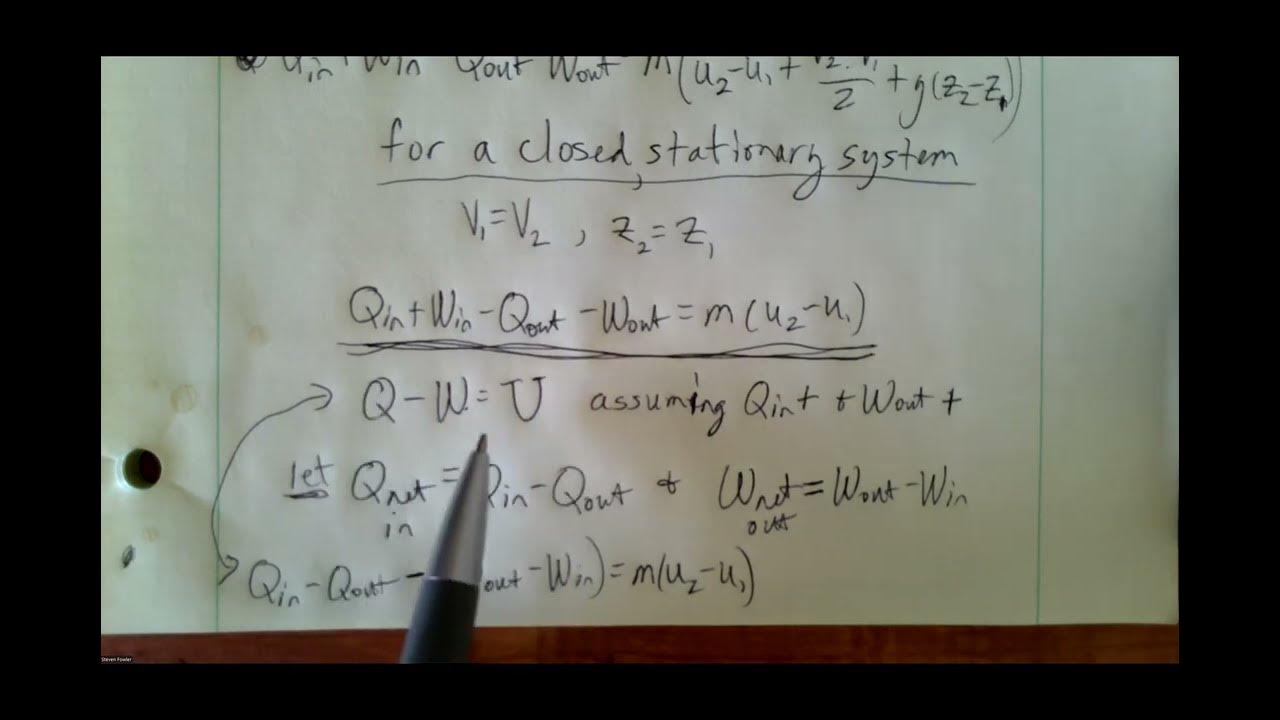 in + Win Qout Wout m(u₂-u₁ + V₂ V₁/2 + g(z₂-z₁))
for a closed, stationary system
V₁=V₂ , z₂=z₁
Qin+Win-Qout-Wout=m(u₂-u₁)
Q-W=U assuming Qin + & Wout +
let Qnet in = Qin-Qout & Wnet out = Wout-Win
Qin-Qout - out-Win)=m(u₂-u₁)
Steven Fowler